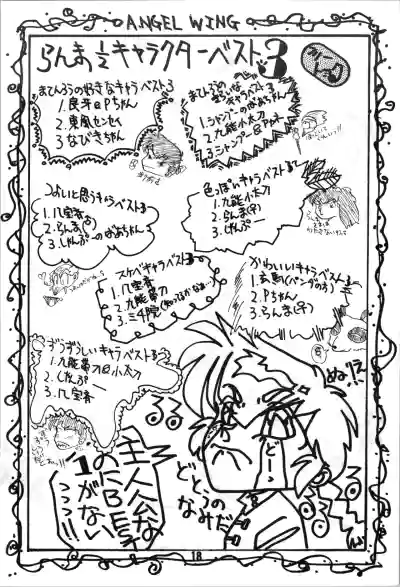 ANGEL WING
らんま½キャラクターベスト3
まてんろうの好きなキャラベスト3
1.良牙&Pちゃん
2.東風センセイ
3.なびきちゃん
キャラベスト3
1.シャンプーのばあちゃん
2.九能小太刀
3.シャンプー&ムース
つよいと思うキャラベスト3
1.八宝斎
2.らんま(♂)
3.しゃんぷーのばあちゃん
色っぽいキャラベスト3
1.九能小太刀
2.らんま(♀)
3.しゃんぷー
スケベキャラベスト3
1.八宝斎
2.九能帯刀
3.三千院
かわいいキャラベスト3
1.玄馬(パンダのち)
2.Pちゃん
3.らんま(♀)
ずうずうしいキャラベスト3
1.九能帯刀&小太刀
2.しゃんぷー
3.八宝斎
ぬ
どー
どとうの
なみだ
主人公な
のにBEST
1がない
!!!
18